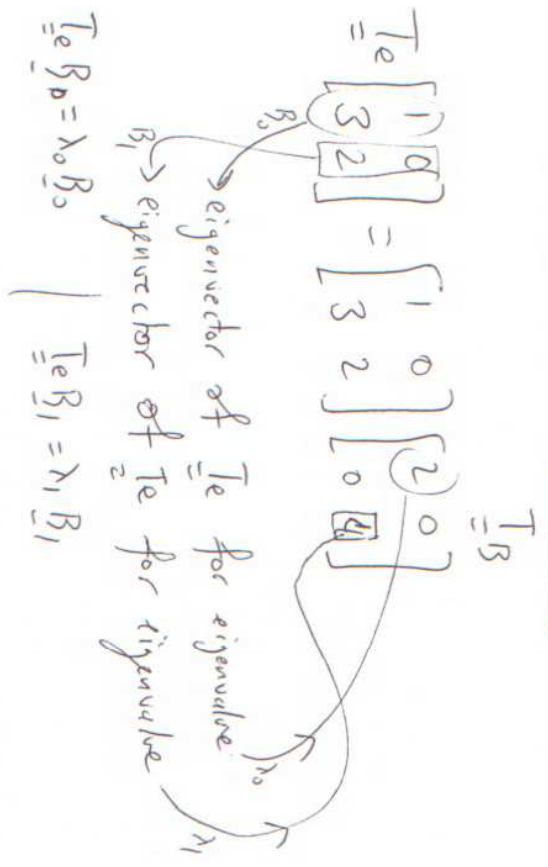 T̳e [1 0
3 2] = [1 0
3 2] [2 0
0 4] T̳B
B̲0 → eigenvector of T̳e for eigenvalue λ0
B̲1 → eigenvector of T̳e for eigenvalue λ1
T̳e B̲0 = λ0 B̲0 | T̳e B̲1 = λ1 B̲1